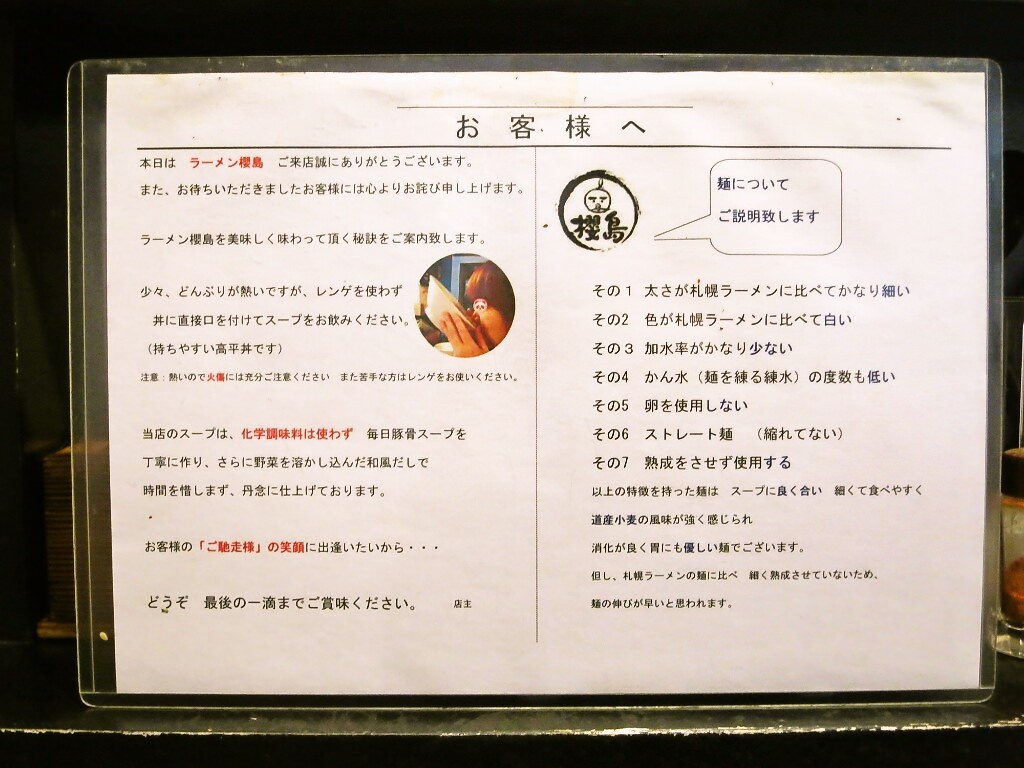 お客様へ
本日は　ラーメン櫻島　ご来店誠にありがとうございます。
また、お待ちいただきましたお客様には心よりお詫び申し上げます。
ラーメン櫻島を美味しく味わって頂く秘訣をご案内致します。
少々、どんぶりが熱いですが、レンゲを使わず
丼に直接口を付けてスープをお飲みください。
（持ちやすい高平丼です）
注意：熱いので火傷には充分ご注意ください　また苦手な方はレンゲをお使いください。
当店のスープは、化学調味料は使わず　毎日豚骨スープを
丁寧に作り、さらに野菜を溶かし込んだ和風だしで
時間を惜しまず、丹念に仕上げております。
お客様の「ご馳走様」の笑顔に出逢いたいから・・・
どうぞ　最後の一滴までご賞味ください。　店主
櫻島
麺について
ご説明致します
その１　太さが札幌ラーメンに比べてかなり細い
その2　色が札幌ラーメンに比べて白い
その３　加水率がかなり少ない
その4　かん水（麺を練る練水）の度数も低い
その5　卵を使用しない
その６　ストレート麺　（縮れてない）
その7　熟成をさせず使用する
以上の特徴を持った麺は　スープに良く合い　細くて食べやすく
道産小麦の風味が強く感じられ
消化が良く胃にも優しい麺でございます。
但し、札幌ラーメンの麺に比べ　細く熟成させていないため、
麺の伸びが早いと思われます。